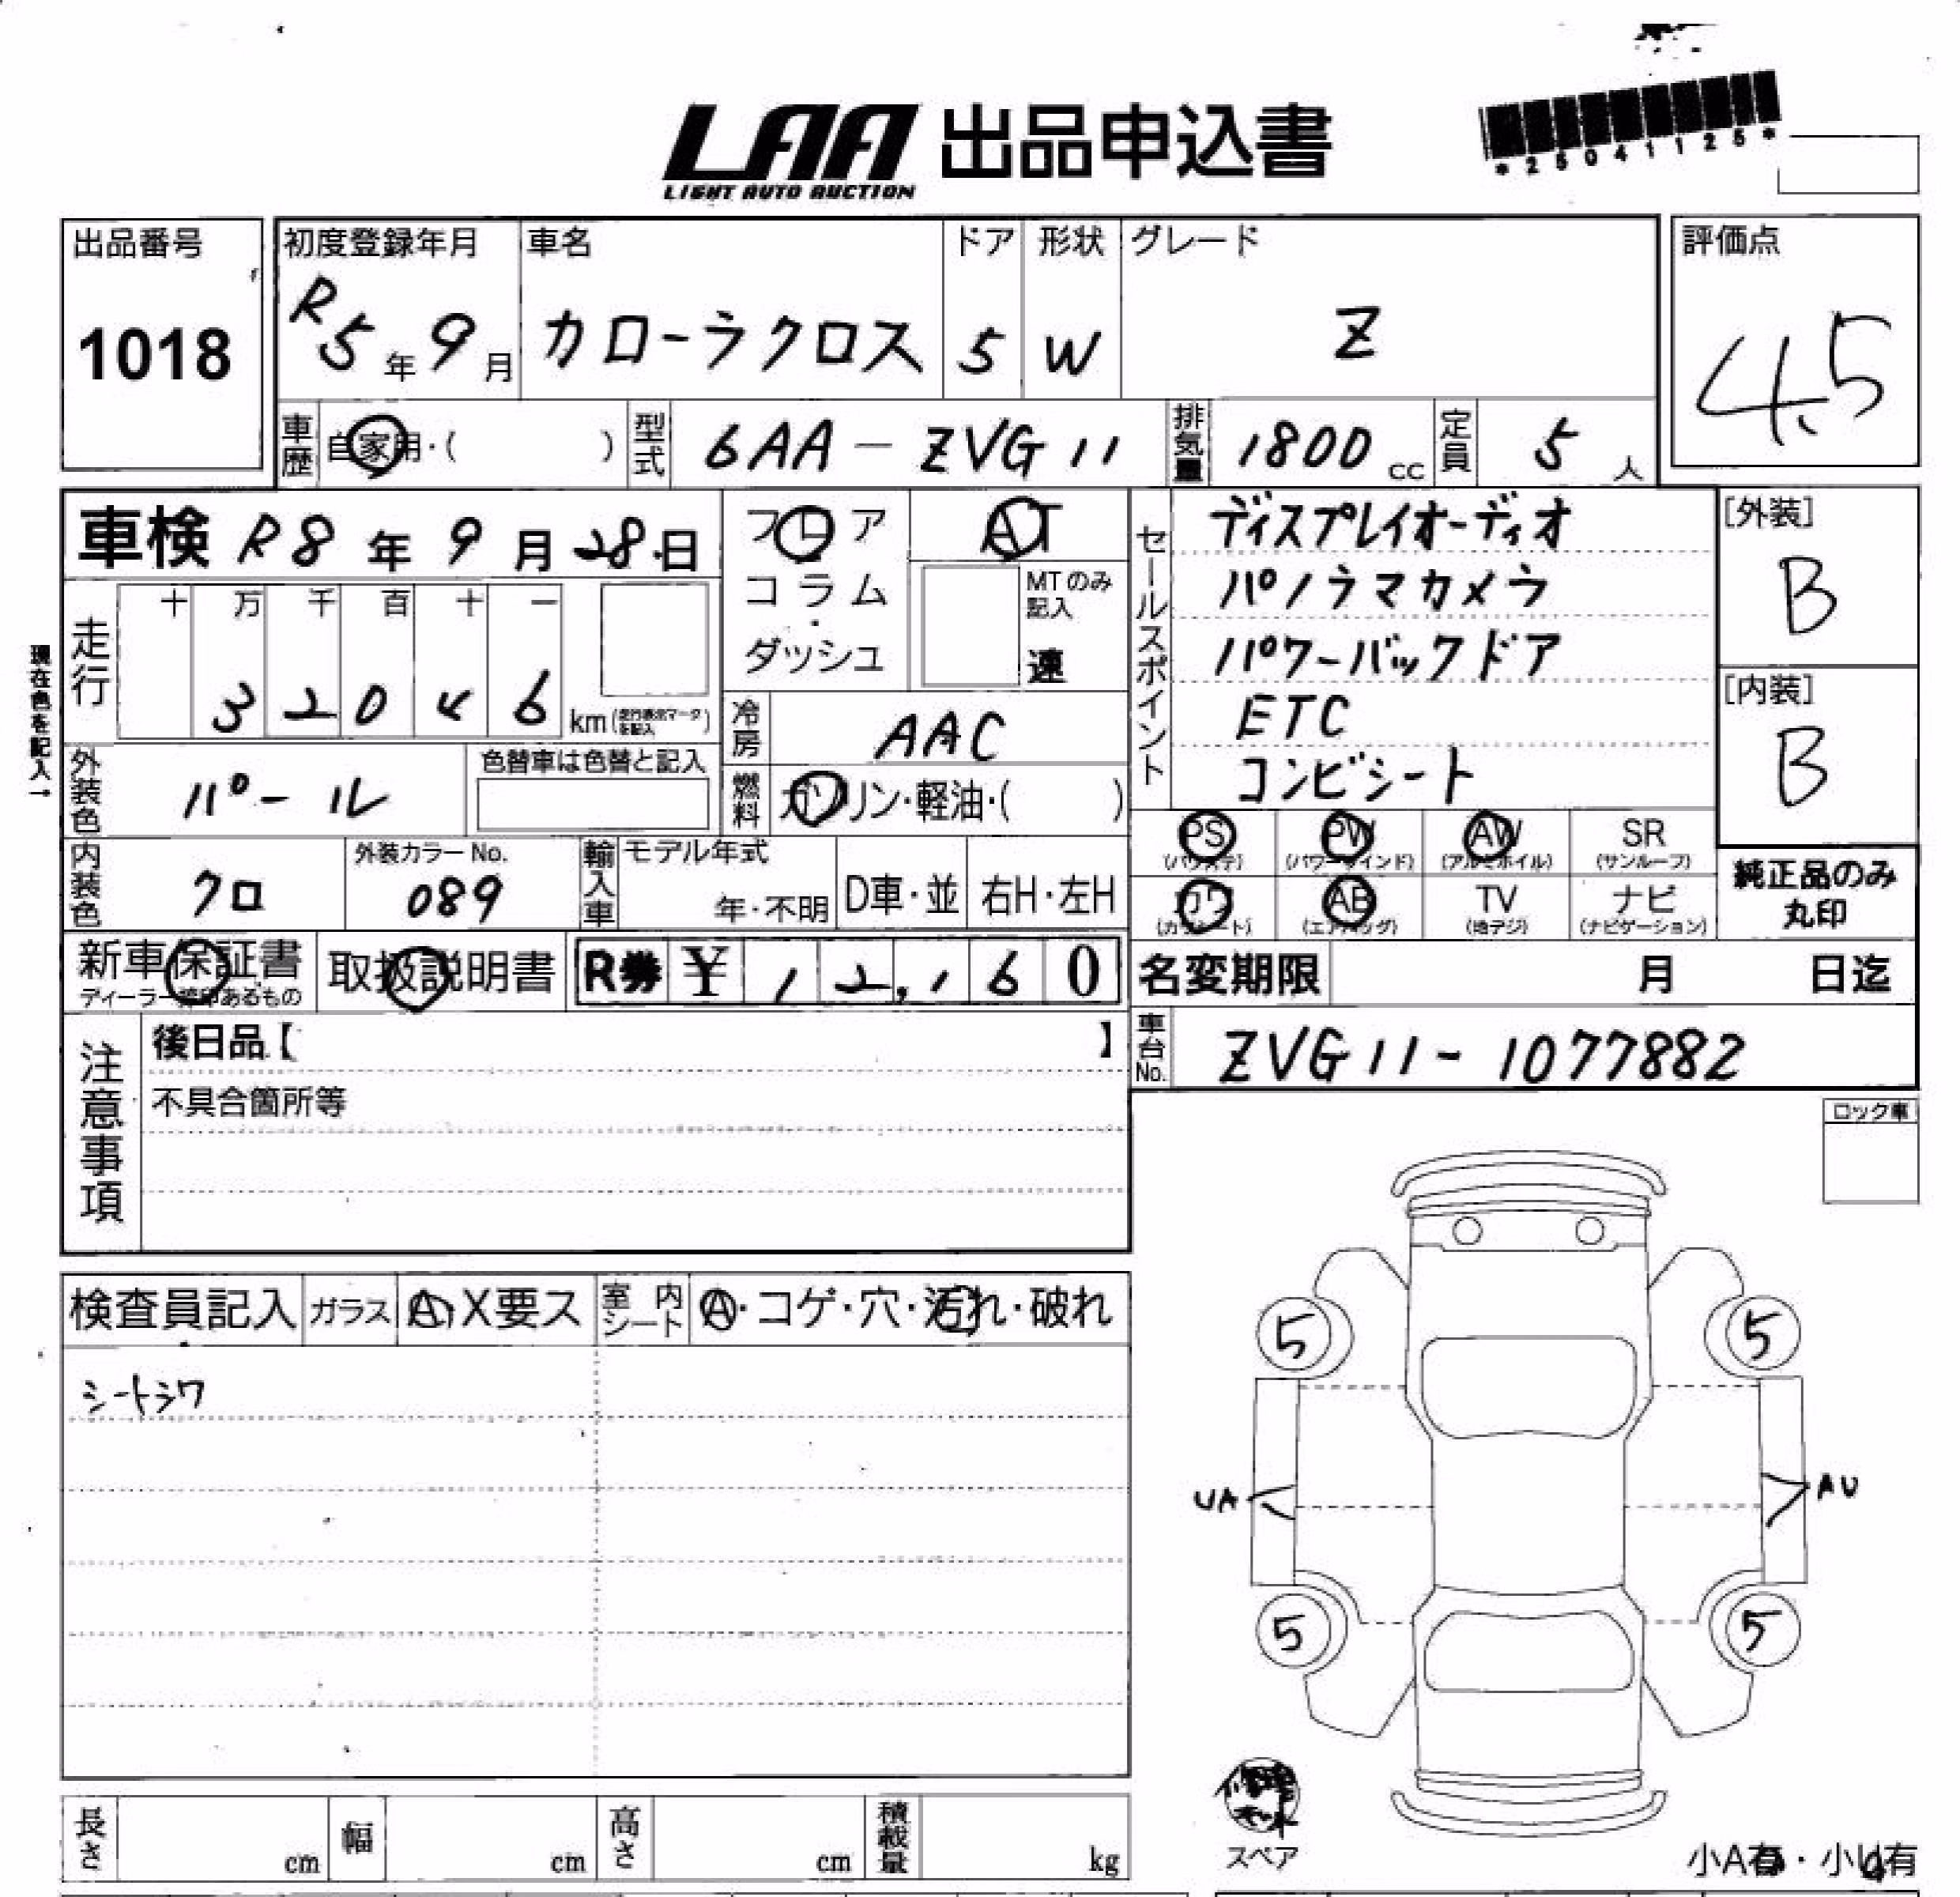 LAA 出品申込書
LIGHT AUTO AUCTION
*25041125*
出品番号
1018
初度登録年月
R5年9月
車名
カローラクロス
ドア
5
形状
W
グレード
Z
評価点
4.5
車歴
自家用・( )
型式
6AA-ZVG11
排気量
1800cc
定員
5人
車検 R8年9月28日
フロア
コラム
ダッシュ
AT
MTのみ記入
速
セールスポイント
ディスプレイオーディオ
パノラマカメラ
パワーバックドア
ETC
コンビシート
[外装]
B
[内装]
B
現在色を記入→
走行
十 万 千 百 十 一
3 2 0 4 6 km(走行表示マークを記入)
冷房
AAC
外装色
パール
色替車は色替と記入
燃料
ガソリン・軽油・( )
PS PW AW SR
(パワステ) (パワーウインド) (アルミホイル) (サンルーフ)
内装色
クロ
外装カラーNo.
089
輸入車
モデル年式
年・不明
D車・並
右H・左H
カワ AB TV ナビ
(カワシート) (エアバッグ) (地デジ) (ナビゲーション)
純正品のみ
丸印
新車保証書
ディーラー捺印あるもの
取扱説明書
R券 ¥12,160
名変期限 月 日迄
注意事項
後日品【 】
不具合箇所等
車台No.
ZVG11-1077882
ロック車
検査員記入
ガラス
A・X要ス
室内シート
A・コゲ・穴・汚れ・破れ
シートシワ
5 5
UA AU
5 5
スペア
小A有・小U有
長さ cm
幅 cm
高さ cm
積載量 kg